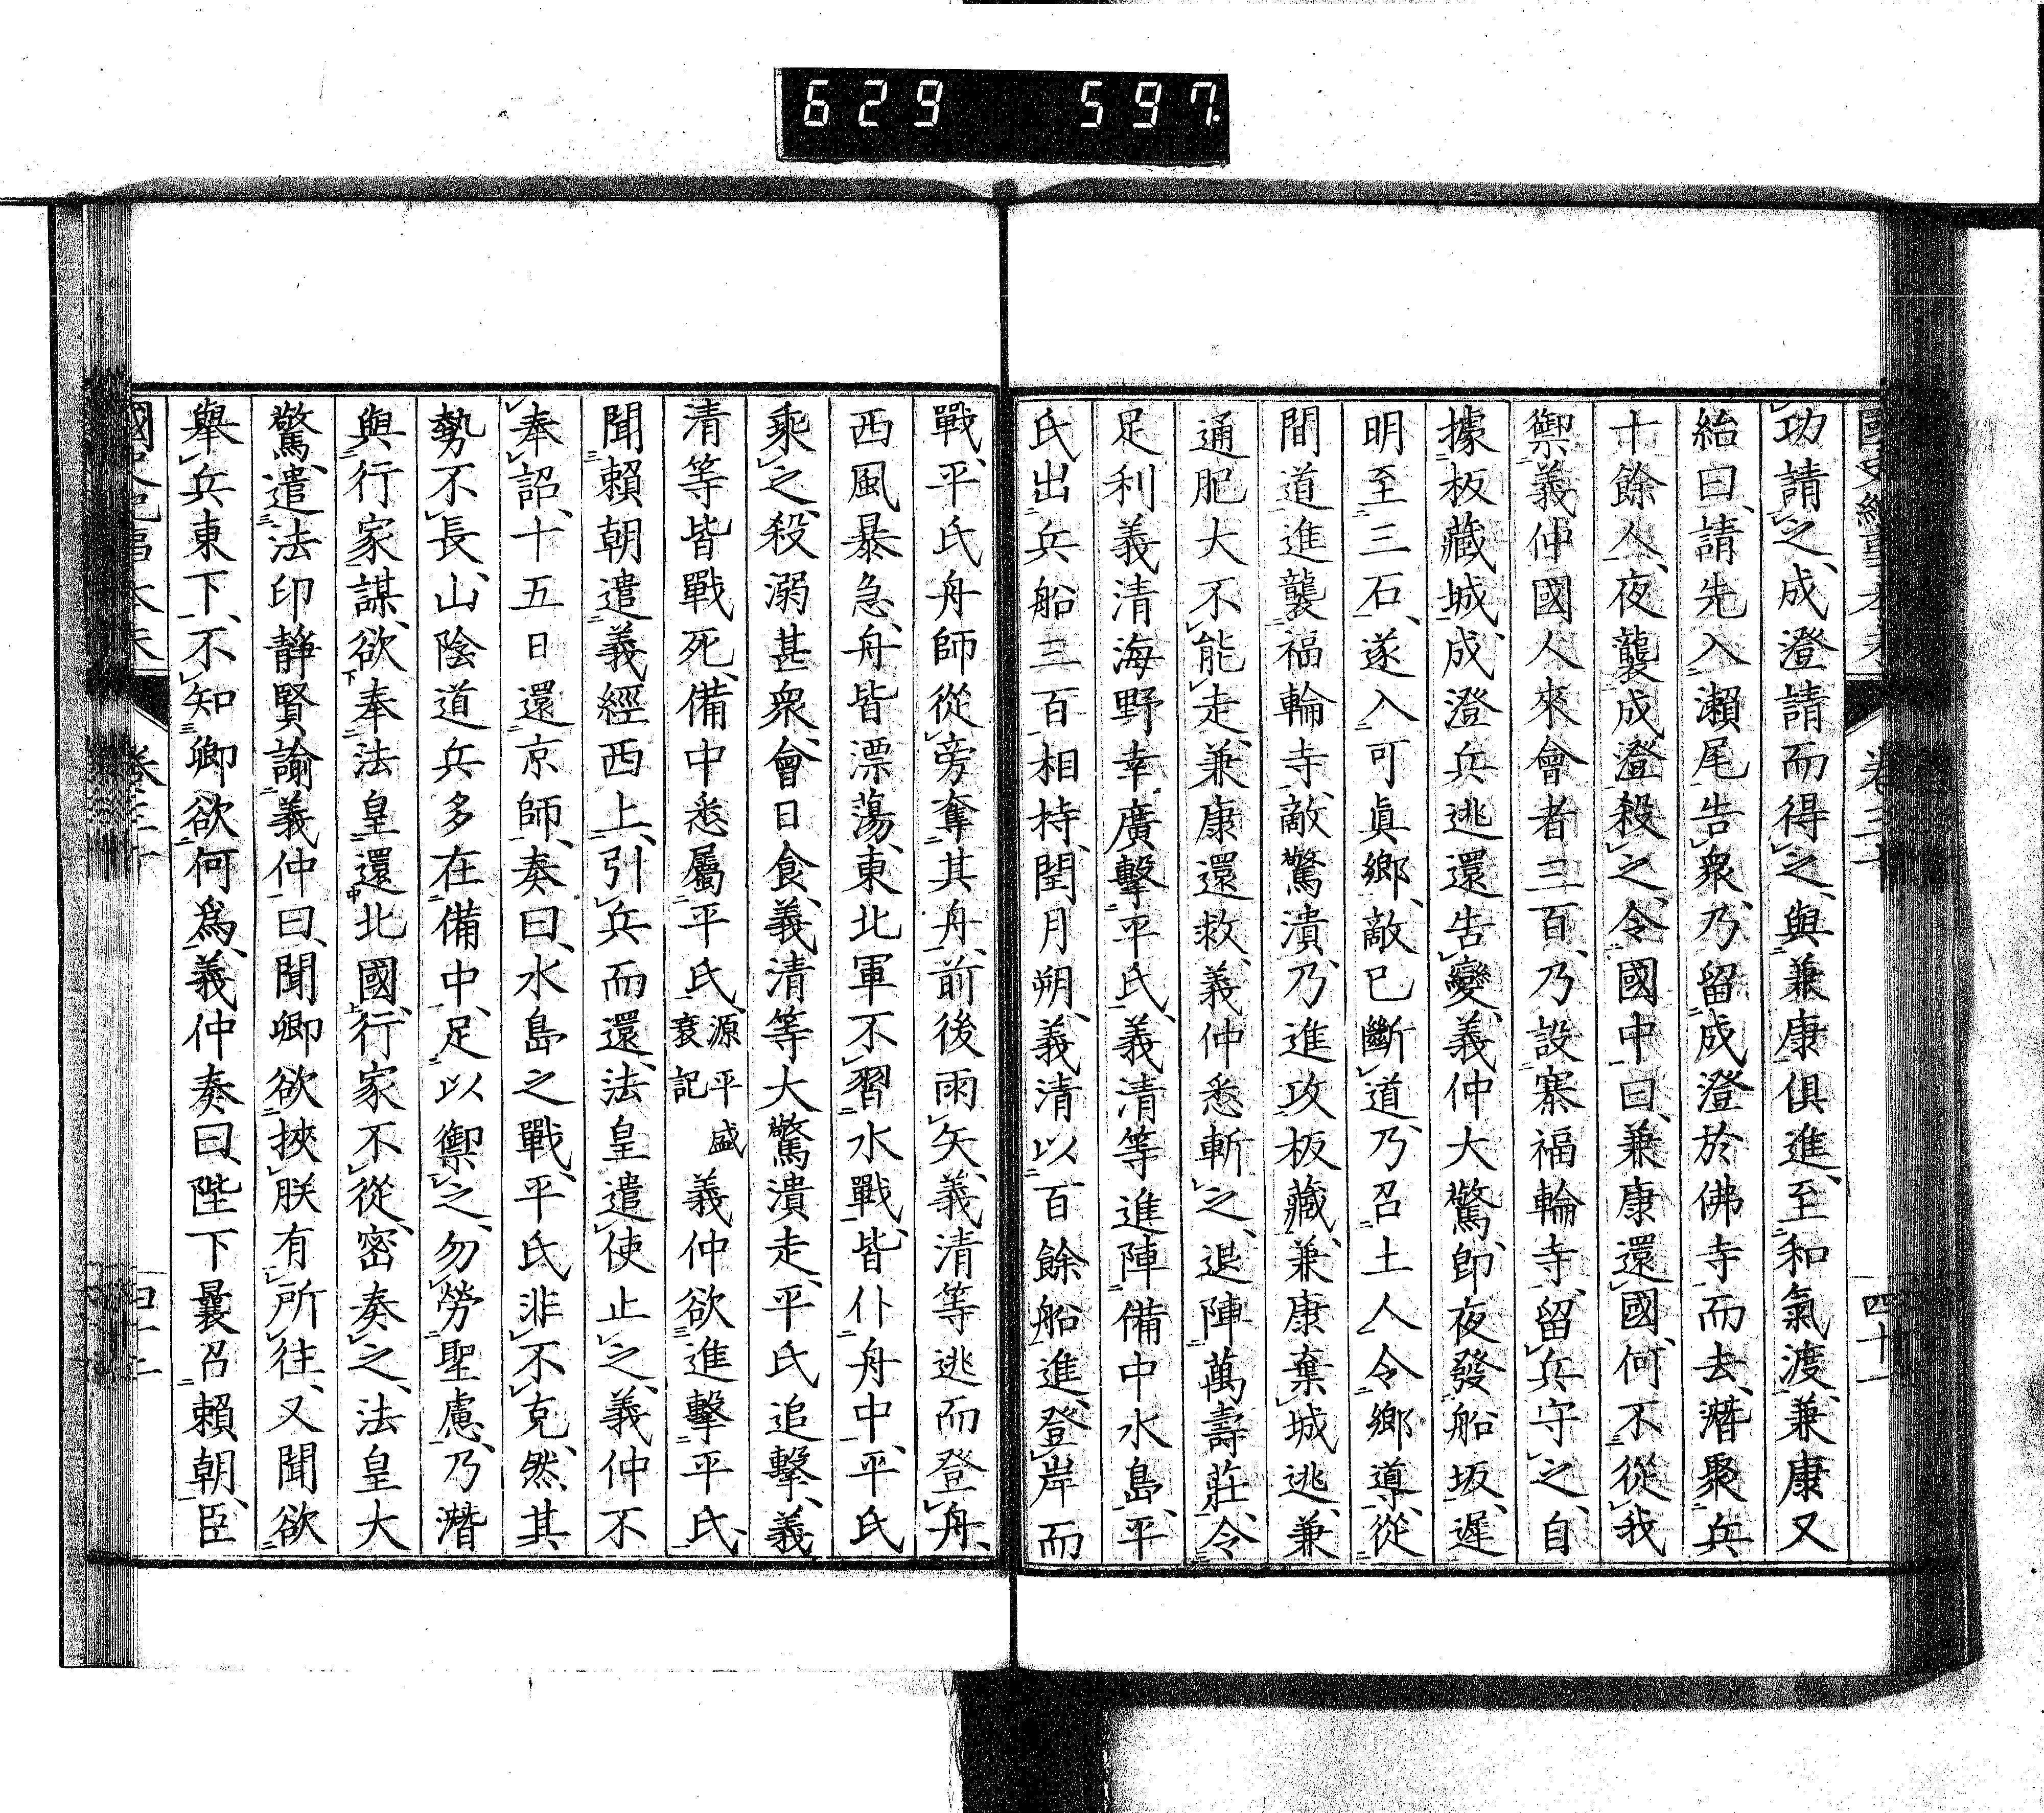 629 597.
卷三十
四十一
功請之、成澄請而得之、與兼康俱進、至和氣渡、兼康又
紿曰、請先入瀨尾告衆、乃留成澄於佛寺而去、潛聚兵
十餘人、夜襲成澄殺之、令國中曰、兼康還國、何不從我
禦義仲國人來會者三百、乃設寨福輪寺、留兵守之、自
據板藏城、成澄兵逃還告變、義仲大驚、卽夜發船坂、遲
明至三石、遂入可眞鄉、敵已斷道、乃召土人令鄉導、從
間道進襲福輪寺、敵驚潰、乃進攻板藏、兼康棄城逃、兼
通肥大不能走、兼康還救、義仲悉斬之、退陣萬壽莊、令
足利義清海野幸廣擊平氏、義清等進陣備中水島、平
氏出兵船三百相持、閏月朔、義清以百餘船進、登岸而
戰、平氏舟師從旁奪其舟、前後雨矢、義清等逃而登舟、
西風暴急、舟皆漂蕩、東北軍不習水戰、皆仆舟中、平氏
乘之、殺溺甚衆、會日食、義清等大驚潰走、平氏追擊、義
清等皆戰死、備中悉屬平氏、源平盛衰記 義仲欲進擊平氏、
聞賴朝遣義經西上、引兵而還、法皇遣使止之、義仲不
奉詔、十五日還京師、奏曰、水島之戰、平氏非不克、然其
勢不長、山陰道兵多在備中、足以禦之、勿勞聖慮、乃潛
與行家謀、欲奉法皇還北國、行家不從、密奏之、法皇大
驚、遣法印靜賢諭義仲曰、聞卿欲挾朕有所往、又聞欲
舉兵東下、不知卿欲何爲、義仲奏曰、陛下曩召賴朝、臣